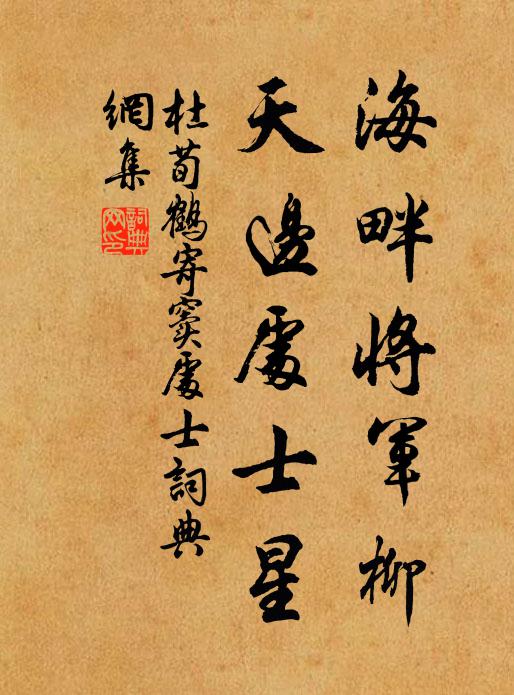 海畔將軍柳
天邊處士星
杜荀鶴寄竇處士詞典
網集
詞典網印